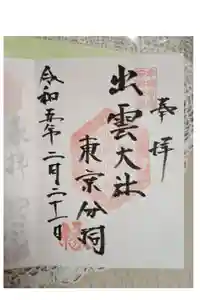 奉拝
出雲大社
東京分祠
令和五年二月二十一日